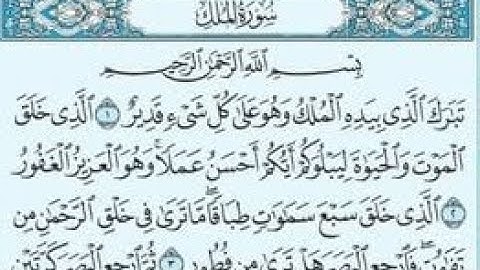 سُورَةُ المُلْكِ
بِسْمِ ٱللَّهِ ٱلرَّحْمَٰنِ ٱلرَّحِيمِ
تَبَٰرَكَ ٱلَّذِى بِيَدِهِ ٱلْمُلْكُ وَهُوَ عَلَىٰ كُلِّ شَىْءٍ قَدِيرٌ ١ ٱلَّذِى خَلَقَ
ٱلْمَوْتَ وَٱلْحَيَوٰةَ لِيَبْلُوَكُمْ أَيُّكُمْ أَحْسَنُ عَمَلًا ۚ وَهُوَ ٱلْعَزِيزُ ٱلْغَفُورُ
٢ ٱلَّذِى خَلَقَ سَبْعَ سَمَٰوَٰتٍ طِبَاقًا ۖ مَّا تَرَىٰ فِى خَلْقِ ٱلرَّحْمَٰنِ مِن
تَفَٰوُتٍ ۖ فَٱرْجِعِ ٱلْبَصَرَ هَلْ تَرَىٰ مِن فُطُورٍ ٣ ثُمَّ ٱرْجِعِ ٱلْبَصَرَ كَرَّتَيْنِ